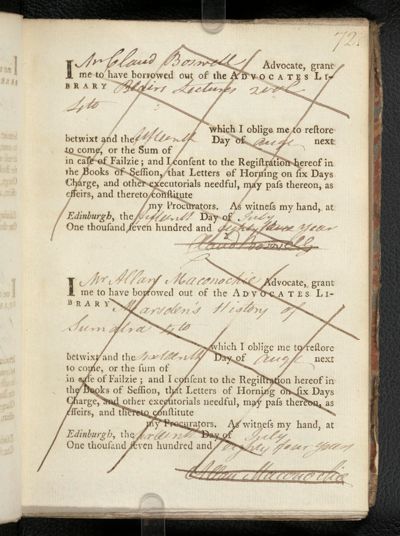 72.
I Mr Claud Boswell Advocate, grant
me to have borrowed out of the ADVOCATES LI-
BRARY Blairs Lectures 2 vol
4to
which I oblige me to reſtore
betwixt and the fifteenth Day of Augt next
to come, or the Sum of
in caſe of Failzie; and I conſent to the Regiſtration hereof in
the Books of Seſſion, that Letters of Horning on ſix Days
Charge, and other executorials needful, may paſs thereon, as
effeirs, and thereto conſtitute
my Procurators. As witneſs my hand, at
Edinburgh, the fifteenth Day of July
One thouſand ſeven hundred and eighty four years
Claud Boswell
I Mr Allan Maconochie Advocate, grant
me to have borrowed out of the ADVOCATES LI-
BRARY Marsden's History of
Sumatra 4to
which I oblige me to reſtore
betwixt and the Day of Augt next
to come, or the ſum of
in caſe of Failzie; and I conſent to the Regiſtration hereof in
the Books of Seſſion, that Letters of Horning on ſix Days
Charge, and other executorials needful, may paſs thereon, as
effeirs, and thereto conſtitute
my Procurators. As witneſs my hand, at
Edinburgh, the Day of July
One thouſand ſeven hundred and eighty four years
Allan Maconochie